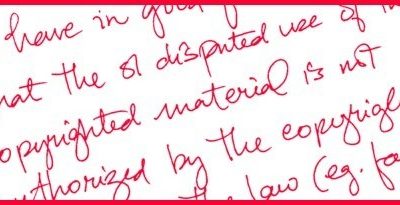 have in good
hat the disputed use of
opyrighted material is not
uthorized by the copyrigh
the law (eg. fa